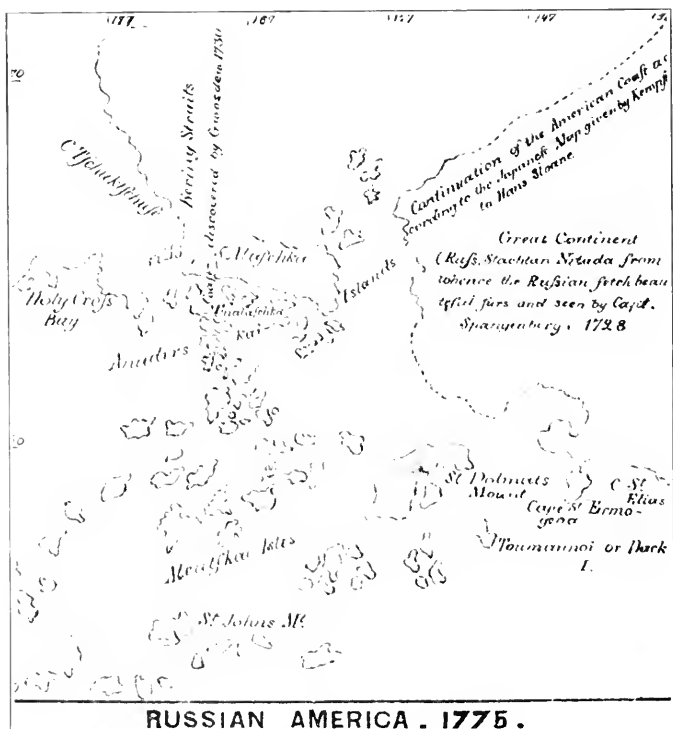 177 167 157 147
70
C. Tschuktschuk
Bering Straits
Coast discovered by Gwosdew 1730
Continuation of the American Coast ac
cording to the Japanese Map given by Kempf
to Hans Sloane
Great Continent
(Ruſs. Stachtan Nitada from
whence the Ruſsian fetch beau
tyful furs and seen by Capt.
Spangenburg. 1728
Islands
Holy Croſs
Bay
Anadirs
St. Dolmats
Mount
Cape St. Ermo-
gena
C. St.
Elias
Toumannoi or Dark
I.
Isles
St. Johns Mt.
RUSSIAN AMERICA. 1775.